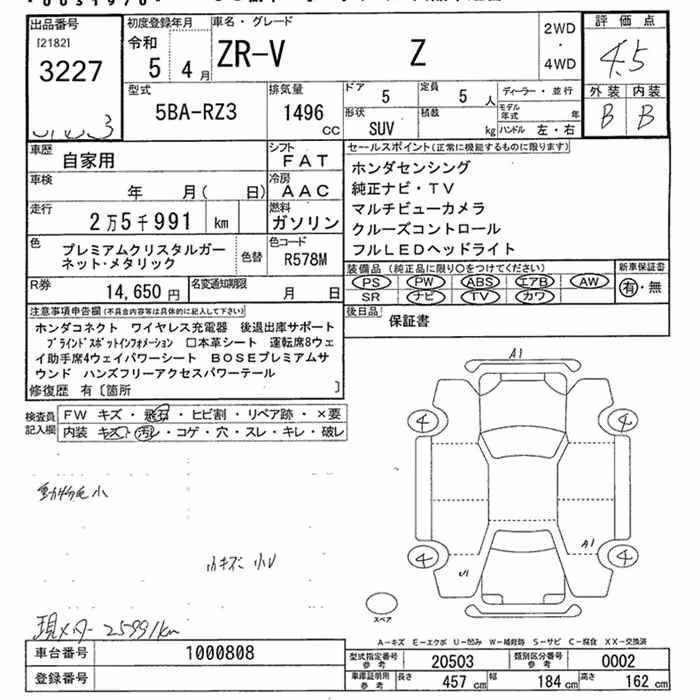 出品番号
[2182]
3227
初度登録年月
令和
5 4月
車名・グレード
ZR-V Z
2WD
・
4WD
評価点
4.5
外装 内装
B B
型式
5BA-RZ3
排気量
1496
CC
ドア
5
定員
5人
ディーラー・並行
形状
SUV
積載
kg
モデル年式 年
ハンドル 左・右
車歴
自家用
シフト
FAT
車検
年 月( 日)
冷房
AAC
走行
2万5千991 km
燃料
ガソリン
色
プレミアムクリスタルガー
ネット・メタリック
色替
色コード
R578M
R券
14,650円
名変通知期限
月 日
セールスポイント(正常に機能するものに限ります)
ホンダセンシング
純正ナビ・TV
マルチビューカメラ
クルーズコントロール
フルLEDヘッドライト
装備品 (純正品に限り○をつけてください)
PS PW ABS エアB AW
SR ナビ TV カワ
新車保証書
有・無
後日品
保証書
注意事項申告欄(不具合内容等は具体的に記入して下さい)
ホンダコネクト ワイヤレス充電器 後退出庫サポート
ブラインドスポットインフォメーション □本革シート 運転席8ウェ
イ助手席4ウェイパワーシート BOSEプレミアムサ
ウンド ハンズフリーアクセスパワーテール
修復歴 有〔箇所 〕
検査員
記入欄
FW キズ・飛石・ヒビ割・リペア跡・×要
内装 キズ・汚レ・コゲ・穴・スレ・キレ・破レ
動物毛小
小キズ 小U
現メーター 25991km
A1
4 4
4 4
A1
U1
スペア
A-キズ E-エクボ U-凹み W-補修跡 S-サビ C-腐食 XX-交換済
車台番号
1000808
登録番号
型式指定番号
参考
20503
類別区分番号
参考
0002
車庫証明用
参考
長さ
457 cm
幅
184 cm
高さ
162 cm